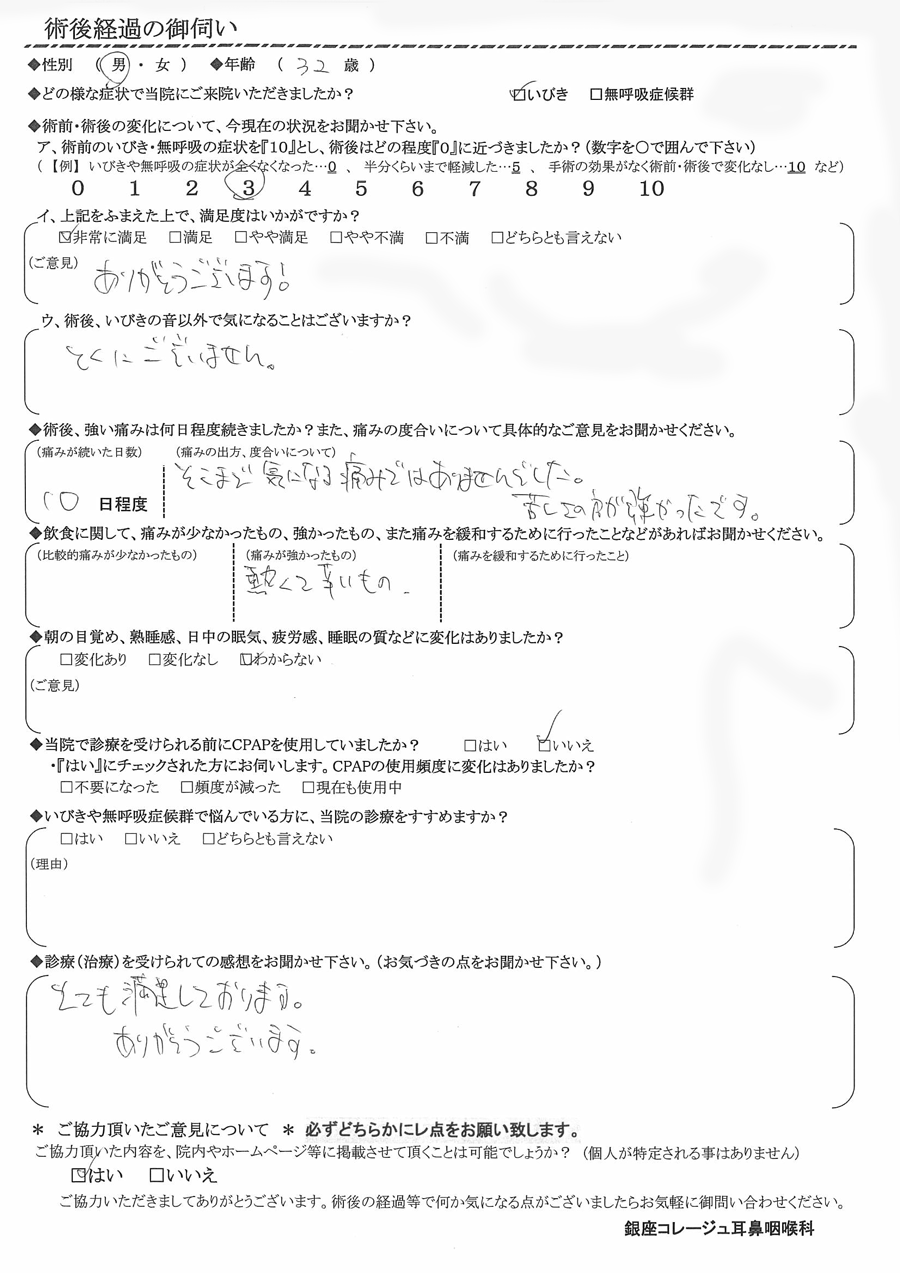 術後経過の御伺い
◆性別 ( 男 ・ 女 ) ◆年齢 ( 32 歳 )
◆どの様な症状で当院にご来院いただきましたか? ☑いびき □無呼吸症候群
◆術前・術後の変化について、今現在の状況をお聞かせ下さい。
ア、術前のいびき・無呼吸の症状を『10』とし、術後はどの程度『0』に近づきましたか?(数字を○で囲んで下さい)
(【例】 いびきや無呼吸の症状が全くなくなった…0 、 半分くらいまで軽減した…5 、 手術の効果がなく術前・術後で変化なし…10 など)
0 1 2 3 4 5 6 7 8 9 10
イ、上記をふまえた上で、満足度はいかがですか?
☑非常に満足 □満足 □やや満足 □やや不満 □不満 □どちらとも言えない
(ご意見) ありがとうございます!
ウ、術後、いびきの音以外で気になることはございますか?
とくにございません。
◆術後、強い痛みは何日程度続きましたか?また、痛みの度合いについて具体的なご意見をお聞かせください。
(痛みが続いた日数) (痛みの出方、度合いについて)
そこまで気になる痛みではありませんでした。
10 日程度 苦しさの方が強かったです。
◆飲食に関して、痛みが少なかったもの、強かったもの、また痛みを緩和するために行ったことなどがあればお聞かせください。
(比較的痛みが少なかったもの) (痛みが強かったもの) (痛みを緩和するために行ったこと)
熱くて辛いもの
◆朝の目覚め、熟睡感、日中の眠気、疲労感、睡眠の質などに変化はありましたか?
□変化あり □変化なし ☑わからない
(ご意見)
◆当院で診療を受けられる前にCPAPを使用していましたか? □はい ☑いいえ
・『はい』にチェックされた方にお伺いします。CPAPの使用頻度に変化はありましたか?
□不要になった □頻度が減った □現在も使用中
◆いびきや無呼吸症候群で悩んでいる方に、当院の診療をすすめますか?
□はい □いいえ □どちらとも言えない
(理由)
◆診療(治療)を受けられての感想をお聞かせ下さい。(お気づきの点をお聞かせ下さい。)
とても満足しております。
ありがとうございます。
* ご協力頂いたご意見について * 必ずどちらかにレ点をお願い致します。
ご協力頂いた内容を、院内やホームページ等に掲載させて頂くことは可能でしょうか? (個人が特定される事はありません)
☑はい □いいえ
ご協力いただきましてありがとうございます。術後の経過等で何か気になる点がございましたらお気軽に御問い合わせください。
銀座コレージュ耳鼻咽喉科